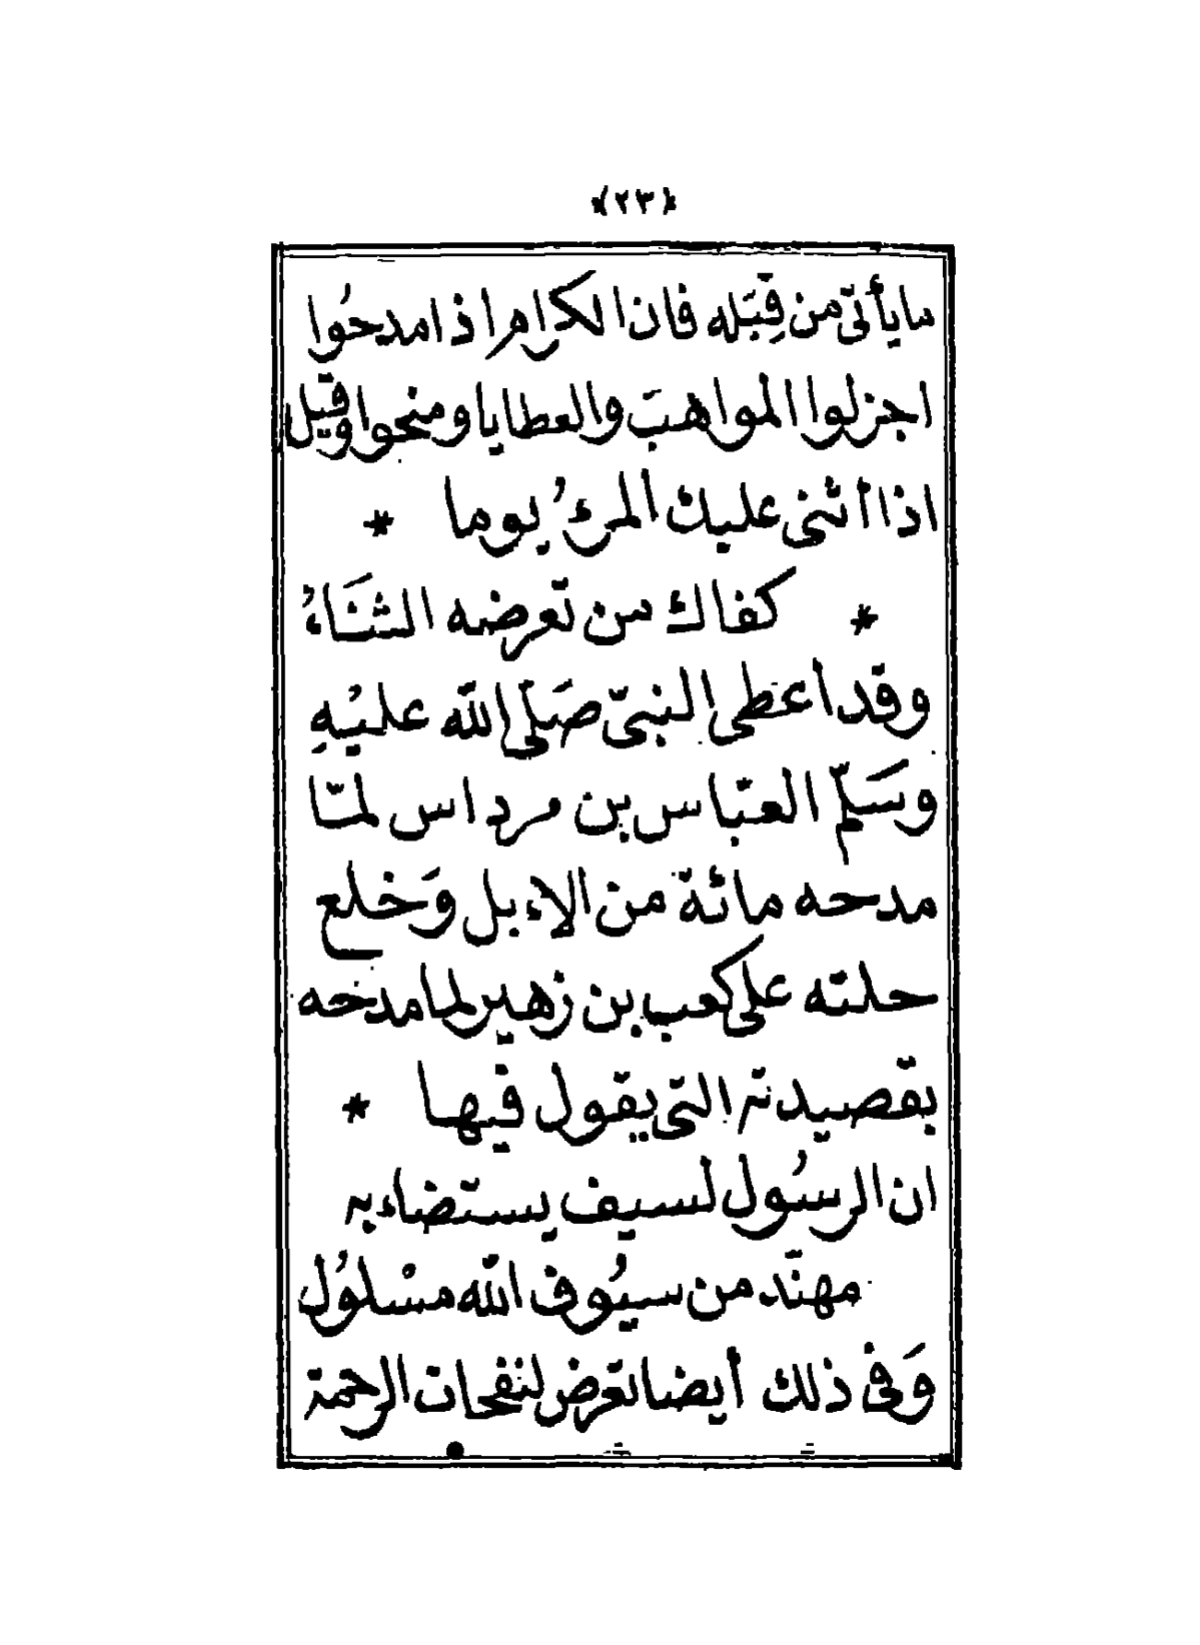 ﴿٢٣﴾
مايأتى من قِبَله فان الكرام اذا مدحُوا
اجزلوا المواهبَ والعطايا ومنحوا وقيل
اذا أثنى عليك المرءُ يوما *
* كفاك من تعرضه الثنَاءُ
وقد أعطى النبىّ صَلّى الله عليْهِ
وسَلّم العبّاس بن مرداس لمّا
مدحه مائة من الإبل وَخلع
حلته على كعب بن زهير لما مدحه
بقصيدته التى يقول فيها *
ان الرسُول لسيف يستضاء به
مهنّد من سيُوف الله مسْلوُل
وَفى ذلك أيضا تعرض لنفحات الرحمة